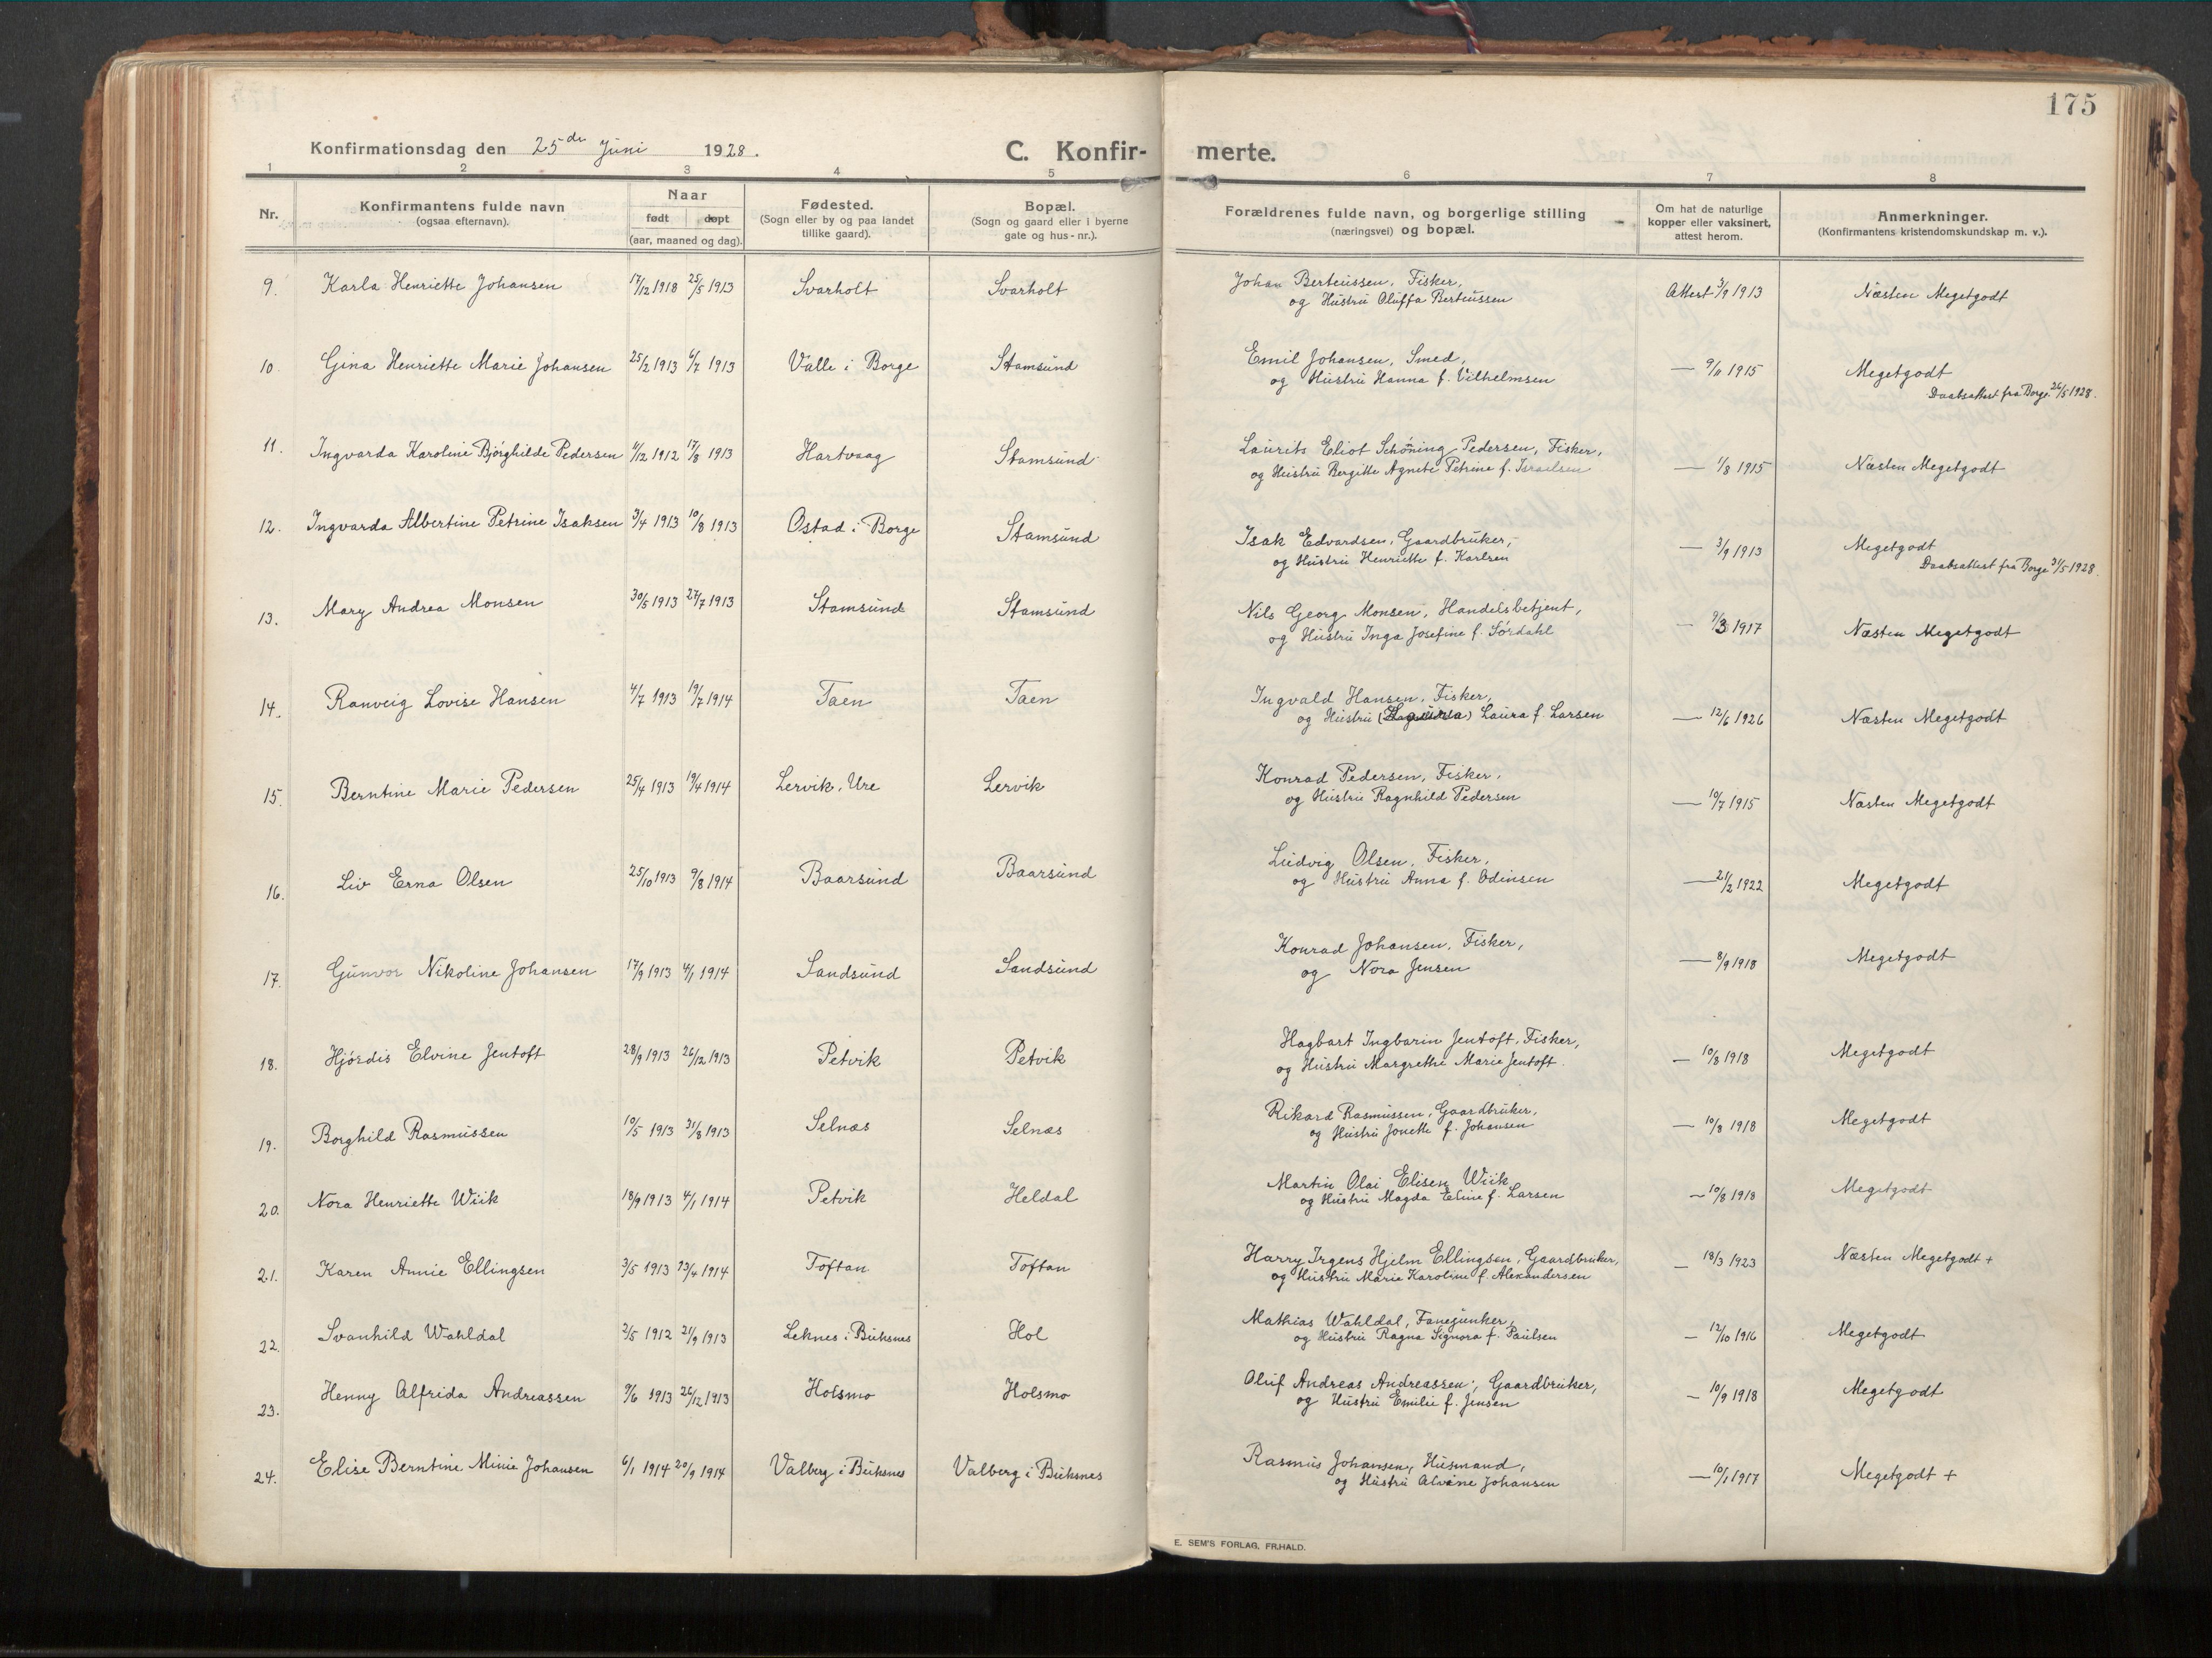 175
Konfirmationsdag den 25de Juni 1928.
C. Konfirmerte.
1 2 3 4 5 6 7 8
Nr.
Konfirmantens fulde navn
(ogsaa efternavn).
Naar
født døpt
(aar, maaned og dag).
Fødested.
(Sogn eller by og paa landet
tillike gaard).
Bopæl.
(Sogn og gaard eller i byerne
gate og hus-nr.).
Forældrenes fulde navn, og borgerlige stilling
(næringsvei) og bopæl.
Om hat de naturlige
kopper eller vaksinert,
attest herom.
Anmerkninger.
(Konfirmantens kristendomskundskap m. v.).
9. Karla Henriette Johansen 17/12 1918 25/5 1913 Svarholt Svarholt Johan Berteussen, Fisker, Attest 3/9 1913 Næsten Megetgodt
og Hustru Oluffa Berteussen
10 Gina Henriette Marie Johansen 25/2 1913 6/7 1913 Valle i Borge Stamsund Emil Johansen, Smed, — 9/11 1915 Megetgodt
og Hustru Hanna f. Vilhelmsen Daabsattest fra Borge 26/5 1928.
11. Ingvarda Karoline Bjørghilde Pedersen 11/12 1912 17/8 1913 Hartvaag Stamsund Laurits Eliot Schöning Pedersen, Fisker, — 1/8 1915 Næsten Megetgodt
og Hustru Bergitte Agnete Petrine f. Israelsen
12. Ingvarda Albertine Petrine Isaksen 3/4 1913 10/8 1913 Ostad i Borge Stamsund Isak Edvardsen, Gaardbruker, — 3/9 1913 Megetgodt
og Hustru Henriette f. Karlsen Daabsattest fra Borge 31/5 1928.
13. Mary Andrea Monsen 30/5 1913 27/7 1913 Stamsund Stamsund Nils Georg Monsen, Handelsbetjent, — 9/3 1917 Næsten Megetgodt
og Hustru Inga Josefine f. Sørdahl
14. Ranveig Lovise Hansen 4/7 1913 19/7 1914 Taen Taen Ingvald Hansen, Fisker, — 12/6 1926 Næsten Megetgodt
og Hustru Laura f. Larsen
15. Berntine Marie Pedersen 25/4 1913 19/4 1914 Lervik, Ure Lervik Konrad Pedersen, Fisker, — 10/7 1915 Næsten Megetgodt
og Hustru Ragnhild Pedersen
16. Liv Erna Olsen 25/10 1913 9/8 1914 Baarsund Baarsund Ludvig Olsen, Fisker, — 21/2 1922 Megetgodt
og Hustru Anna f. Odinsen
17. Gunvor Nikoline Johansen 17/9 1913 4/1 1914 Sandsund Sandsund Konrad Johansen, Fisker, — 8/9 1918 Megetgodt
og Nora Jensen
18. Hjördis Elvine Jentoft 28/9 1913 26/12 1913 Petvik Petvik Hagbart Ingbarin Jentoft, Fisker, — 10/8 1918 Megetgodt
og Hustru Margrethe Marie Jentoft.
19. Borghild Rasmussen 10/5 1913 31/8 1913 Selnæs Selnæs Rikard Rasmussen, Gaardbruker, — 10/8 1918 Megetgodt
og Hustru Jonette f. Johansen
20. Nora Henriette Wiik 18/9 1913 4/1 1914 Petvik Heldal Martin Olai Elisen Wiik — 10/8 1918 Megetgodt
og Hustru Magda Eline f. Larsen
21. Karen Annie Ellingsen 3/5 1913 13/4 1914 Toftan Toftan Harry Irgens Hjelm Ellingsen, Gaardbruker, — 18/3 1923 Næsten Megetgodt +
og Hustru Marie Karoline f. Alexandersen
22. Svanhild Wahldal 2/5 1912 21/9 1913 Leknes i Buksnes Hol Mathias Wahldal, Fanejunker, — 12/10 1916 Megetgodt
og Hustru Ragna Signora f. Paulsen
23. Henny Alfrida Andreassen 9/6 1913 26/12 1913 Holsmo Holsmo Oluf Andreas Andreassen, Gaardbruker, — 10/9 1918 Megetgodt
og Hustru Emilie f. Jensen
24. Elise Berntine Minie Johansen 6/1 1914 20/9 1914 Valberg i Buksnes Valberg i Buksnes Rasmus Johansen, Husmand, — 10/1 1917 Megetgodt +
og Hustru Alvine Johansen
E. SEM'S FORLAG, FR.HALD.